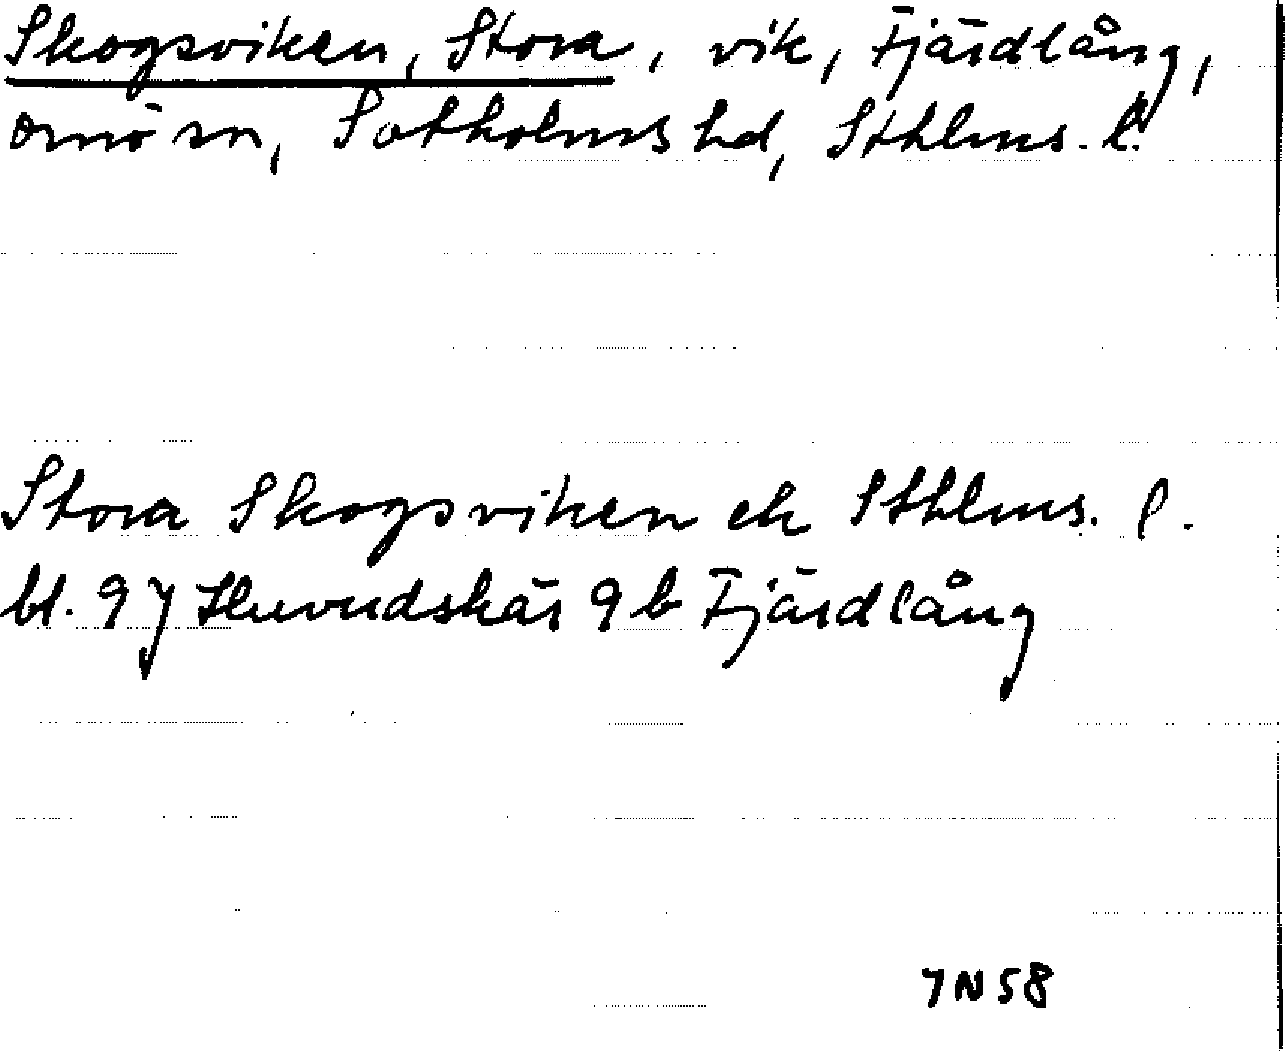 Skogsviken, Stora, vik, Fjärdlång,
Ornö sn, Sotholms hd, Sthlms. l.
Stora Skogsviken ek Sthlms. l.
bl. 9J Huvudskär 9 b Fjärdlång
7N58